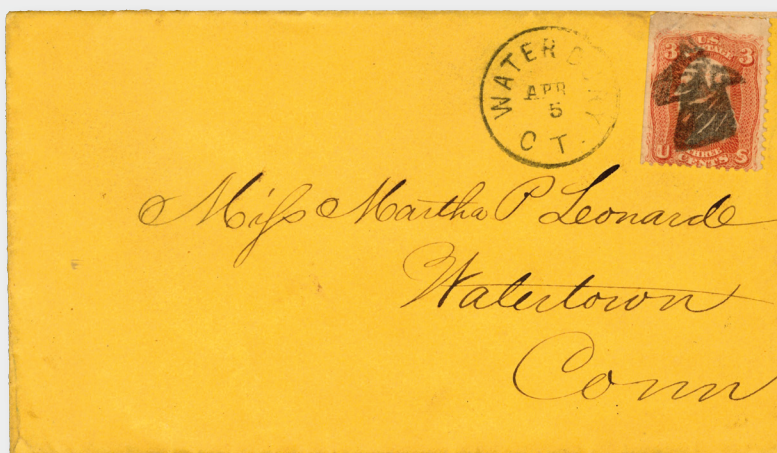 WATERBURY
APR
5
CT.
3 U.S. 3
U THREE S
CENTS
Miss Martha P Leonard
Watertown
Conn